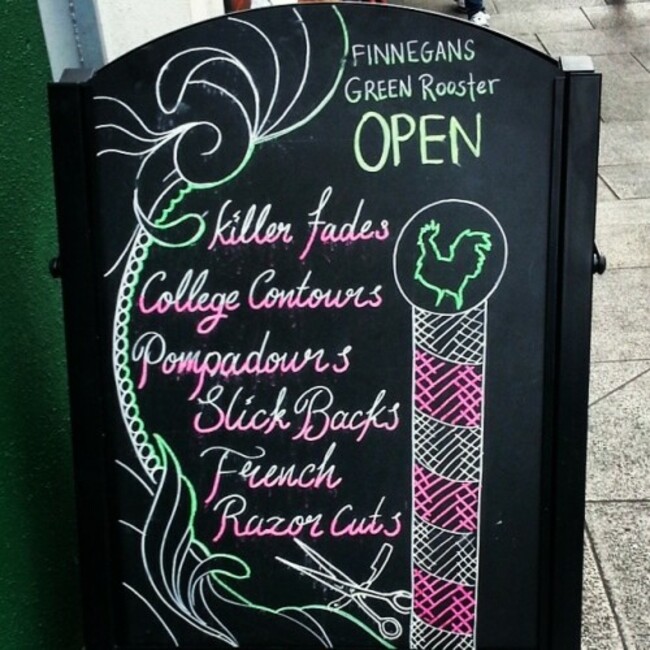 FINNEGANS
GREEN Rooster
OPEN
Killer fades
College Contours
Pompadours
Slick Backs
French
Razor Cuts